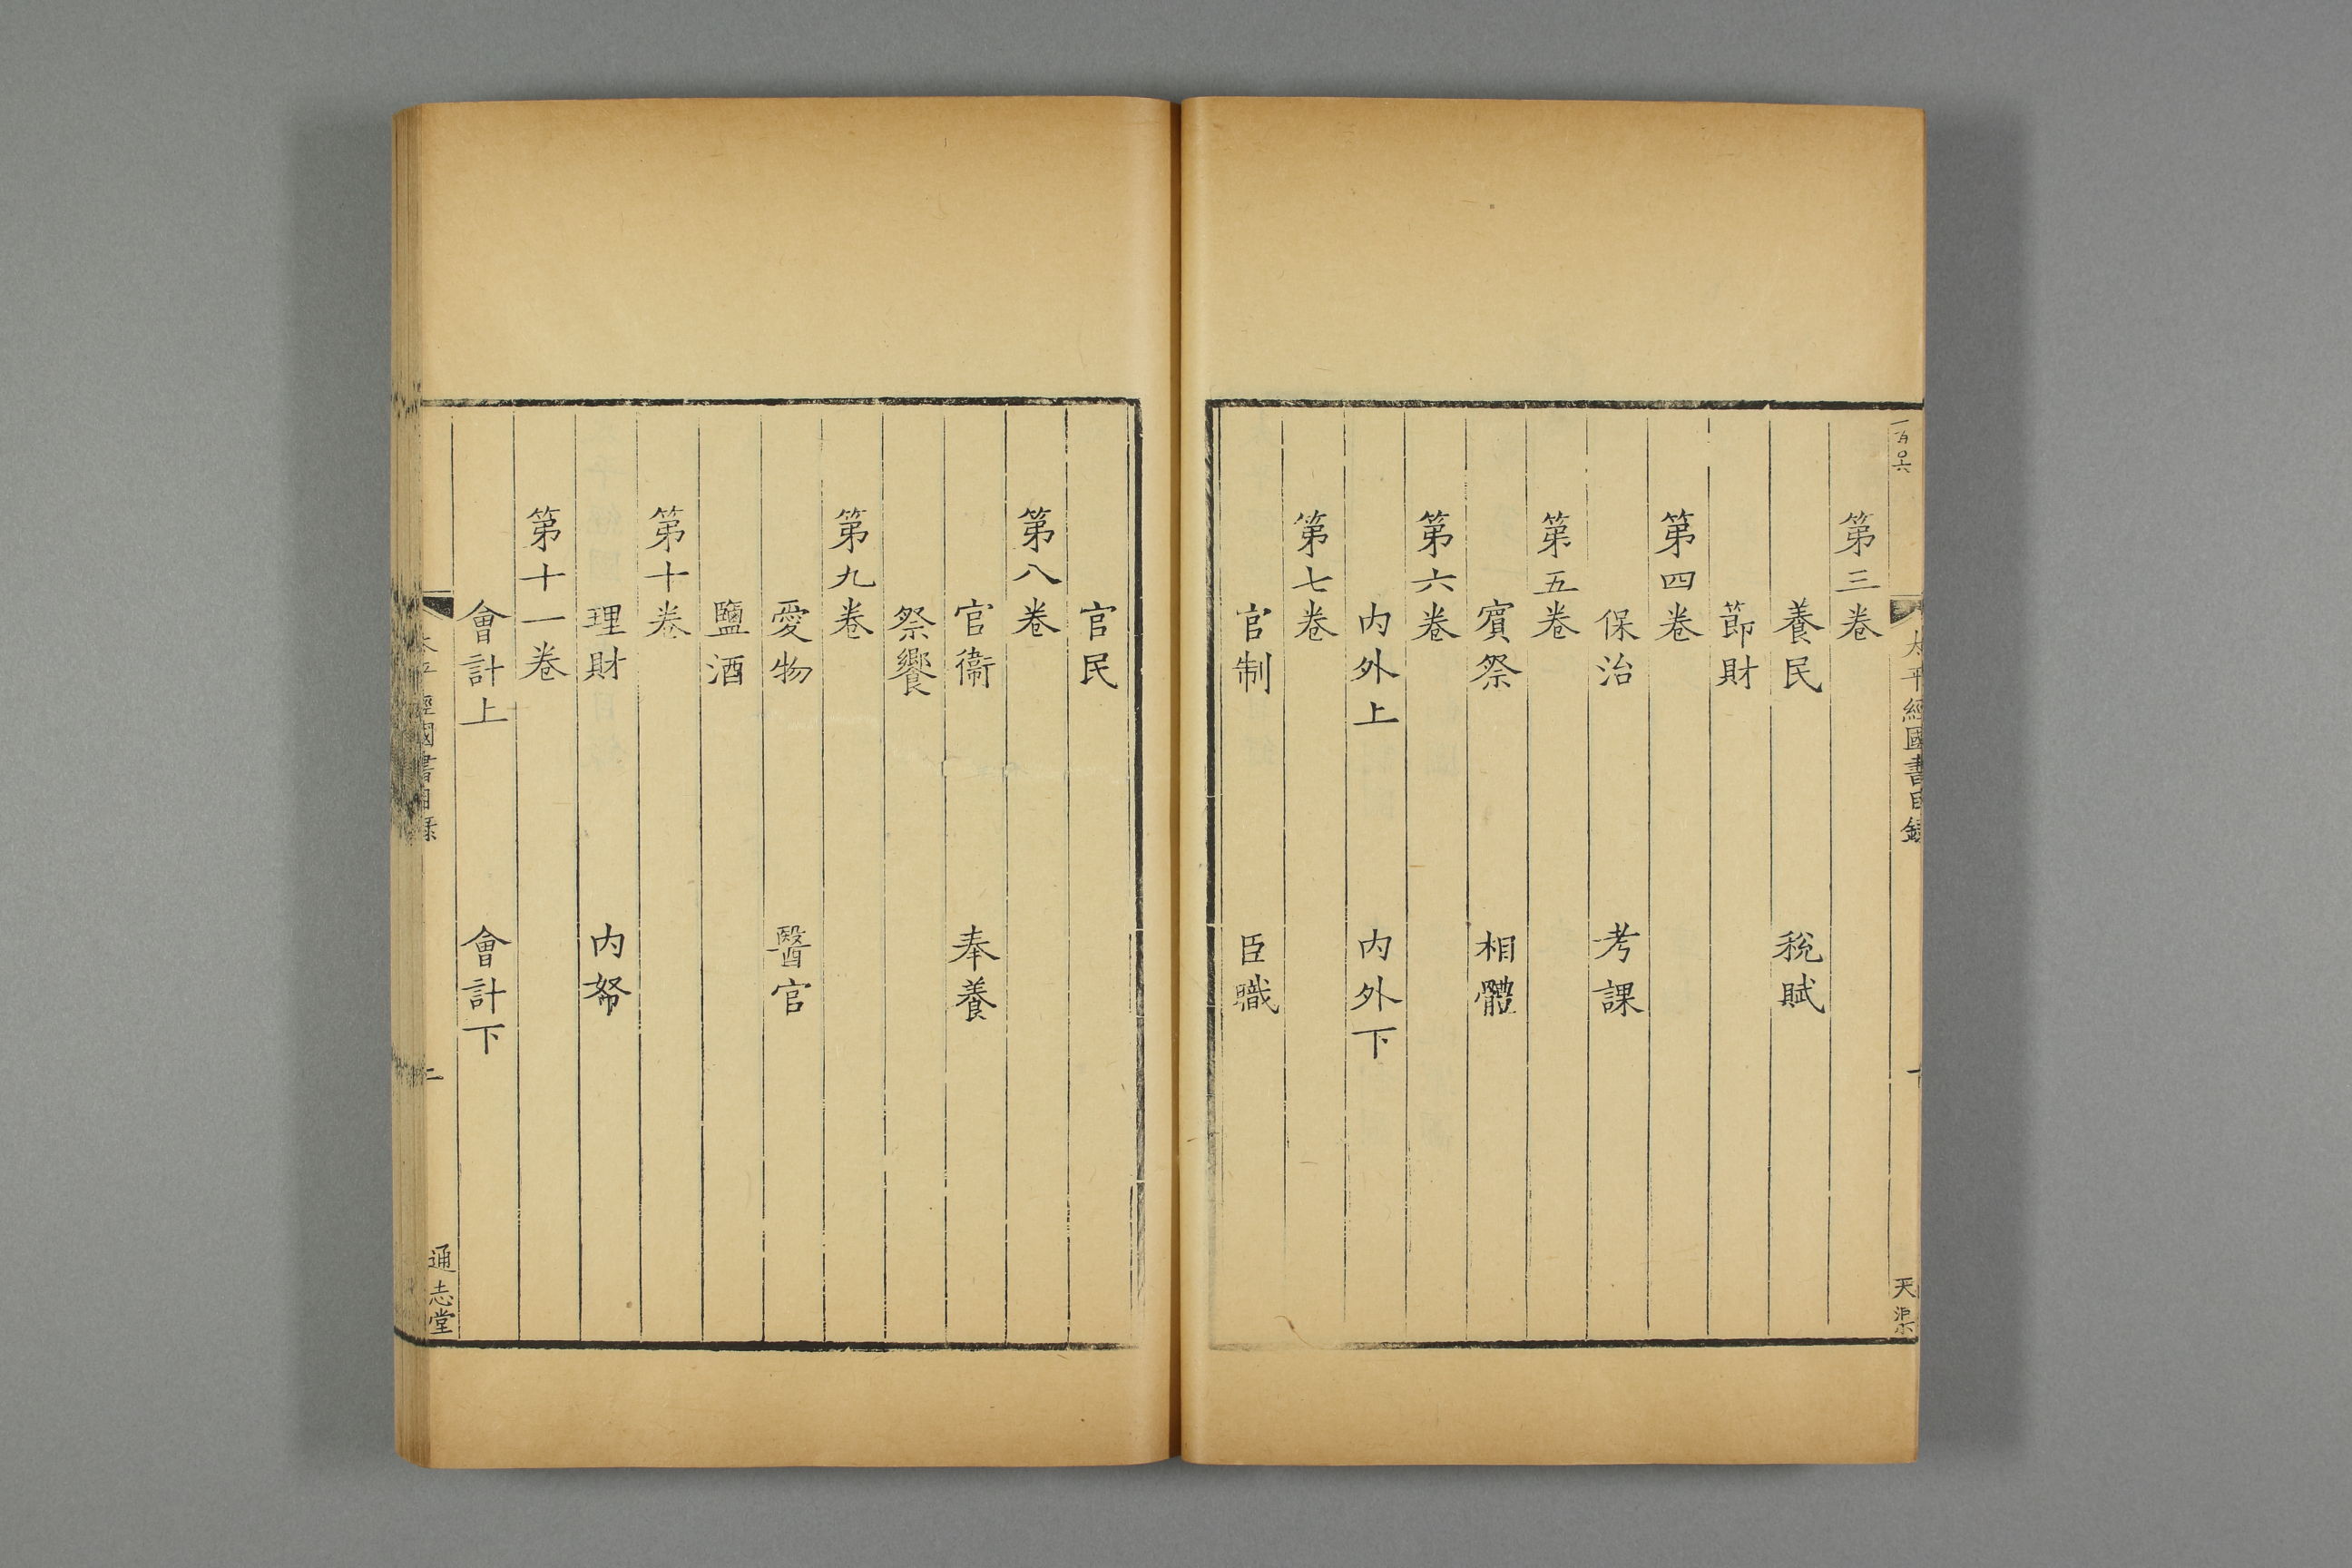 一百〇六
太平經國書目錄
天渠
第三卷
養民 稅賦
節財
第四卷
保治 考課
第五卷
賓祭 相體
第六卷
内外上 内外下
第七卷
官制 臣職
官民
第八卷
官衞 奉養
祭饗
第九卷
愛物 醫官
鹽酒
第十卷
理財 内帑
第十一卷
會計上 會計下
太平經國書目錄
二
通志堂